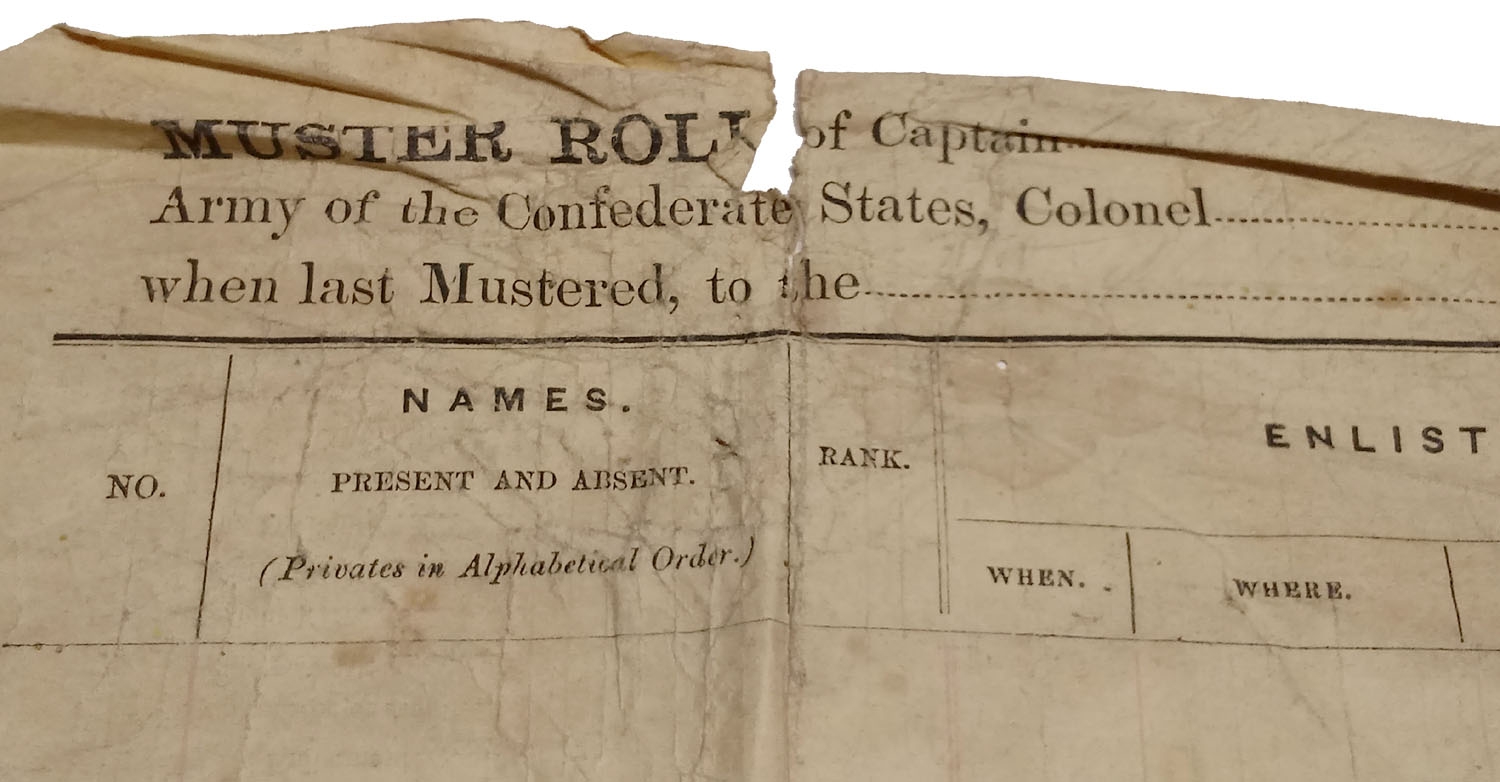 MUSTER ROLL of Captain
Army of the Confederate States, Colonel
when last Mustered, to the
NO.
NAMES.
PRESENT AND ABSENT.
(Privates in Alphabetical Order.)
RANK.
ENLIST
WHEN.
WHERE.